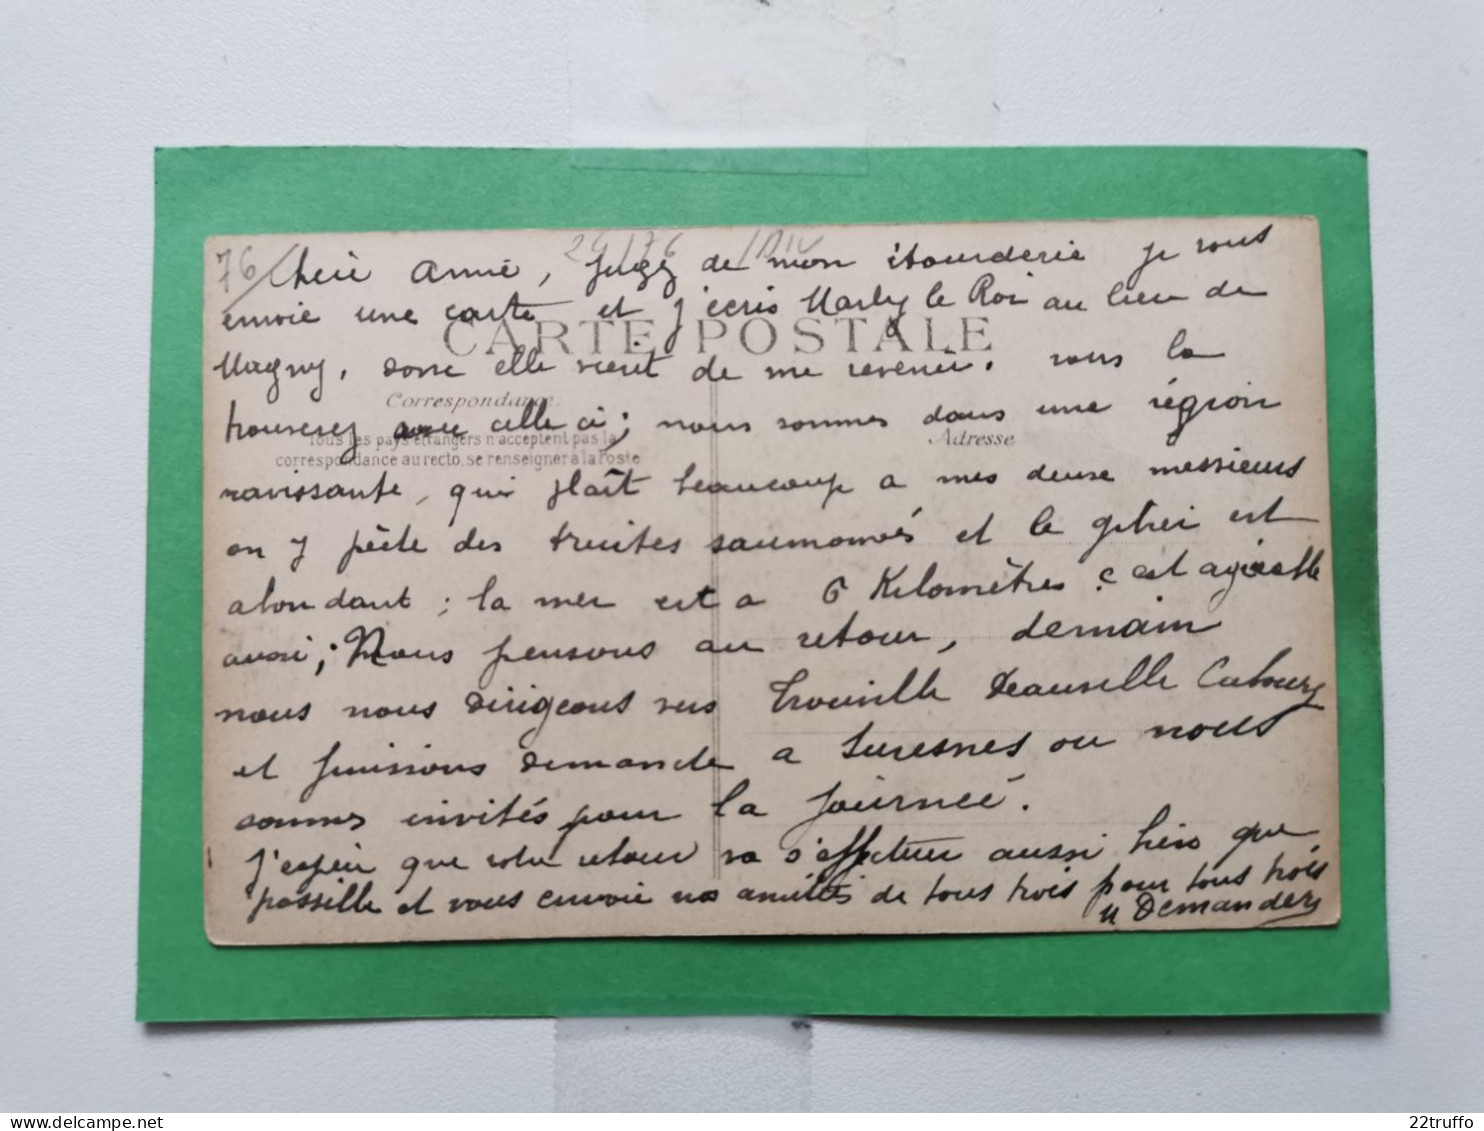 76
24 176
Chère amie, jugez de mon étourderie je vous
envoie une carte et j'écris Marly le Roi au lieu de
CARTE POSTALE
Magny, donc elle vient de me revenir. vous la
Correspondance.
trouverez avec celle ci; nous sommes dans une région
Adresse
Tous les pays étrangers n'acceptent pas la
correspondance au recto, se renseigner à la Poste
ravissante, qui plaît beaucoup a mes deux messieurs
on y pêche des truites saumonés et le gibier est
abondant; la mer est a 6 Kilomètres. c'est agréable
aussi; Nous pensons au retour, demain
nous nous dirigeons vers Trouville Deauville Cabourg
et finissons dimanche a Suresnes ou nous
sommes invités pour la journée.
J'espère que votre retour va s'effectuer aussi bien que
possible et vous envoie nos amitiés de tous trois pour tous trois
Demanders
delcampe.net
22truffo